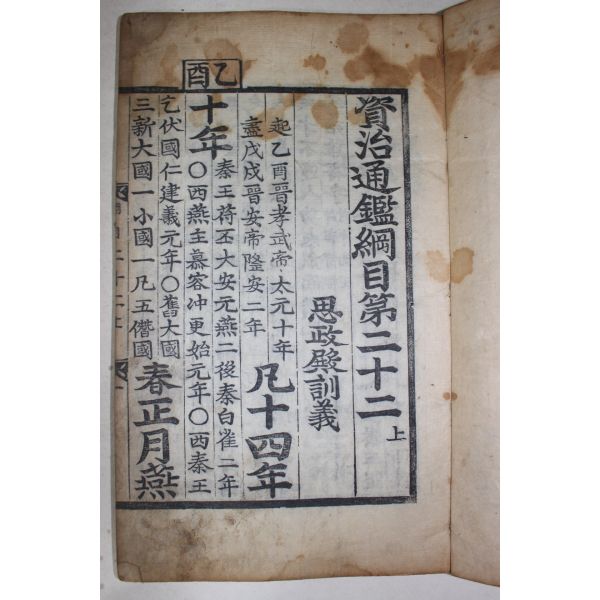 資治通鑑綱目第二十二上
思政殿訓義
起乙酉晉孝武帝太元十年
盡戊戌晉安帝隆安二年
凡十四年
乙酉
十年
秦王苻丕大安元燕二後秦白雀二年
〇西燕主慕容冲更始元年〇西秦王
乞伏國仁建義元年〇舊大國
三新大國一小國一凡五僭國
春正月燕